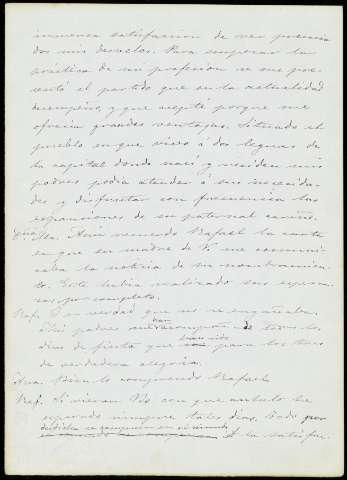 inmensa satisfaccion de ver premia
dos mis desvelos. Para empezar la
práctica de mi profesion se me pre-
sentó el partido que en la actualidad
desempeño, y que acepté porque me
ofrecia grandes ventajas. Situado el
pueblo en que vivo á dos leguas de
la capital donde nací y residen mis
padres podia atender á sus necesida-
des y disfrutar con frecuencia las
espansiones de su paternal cariño.
Aun recuerdo Rafael la carta
en que su madre de V. me comuni-
caba la noticia de su nombramien-
to. Este habia realizado sus espe-
ranzas por completo.
Raf. Y en verdad que no se engañaba.
Mis padres han de todos los
dias de fiesta que han sido para los tres
de verdadera alegria.
Ana. Bien lo comprendo Rafael.
Raf. Si vieran Vds con que anhelo he
esperado siempre tales dias. Todo por
á la satisfac-